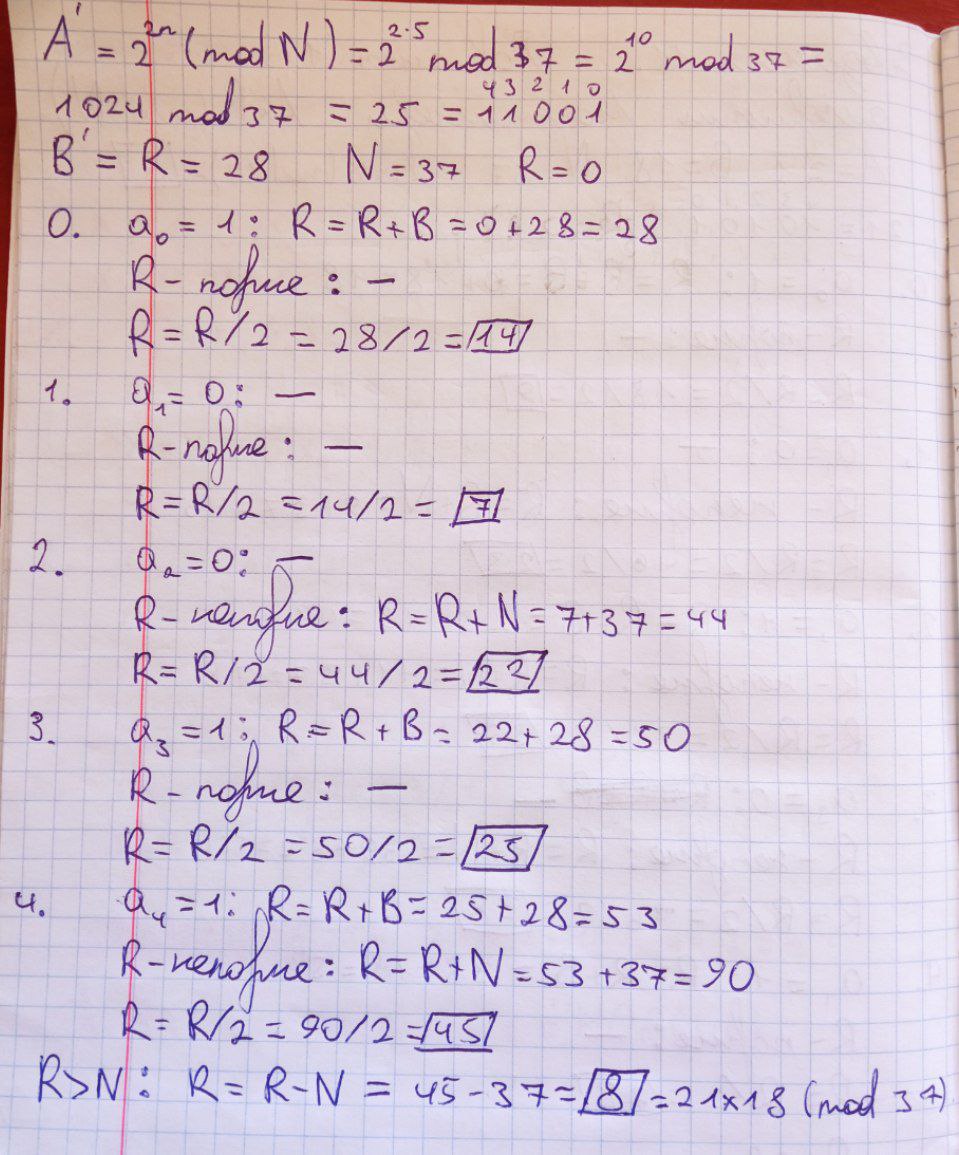 A' = 2^2n (mod N) = 2^2·5 mod 37 = 2^10 mod 37 =
4 3 2 1 0
1024 mod 37 = 25 = 11001
B' = R = 28 N = 37 R = 0
0. a₀ = 1: R = R + B = 0 + 28 = 28
R - парне: —
R = R/2 = 28/2 = 14
1. a₁ = 0: —
R - парне: —
R = R/2 = 14/2 = 7
2. a₂ = 0: —
R - непарне: R = R + N = 7 + 37 = 44
R = R/2 = 44/2 = 22
3. a₃ = 1: R = R + B = 22 + 28 = 50
R - парне: —
R = R/2 = 50/2 = 25
4. a₄ = 1: R = R + B = 25 + 28 = 53
R - непарне: R = R + N = 53 + 37 = 90
R = R/2 = 90/2 = 45
R > N: R = R - N = 45 - 37 = 8 = 21 × 18 (mod 37)